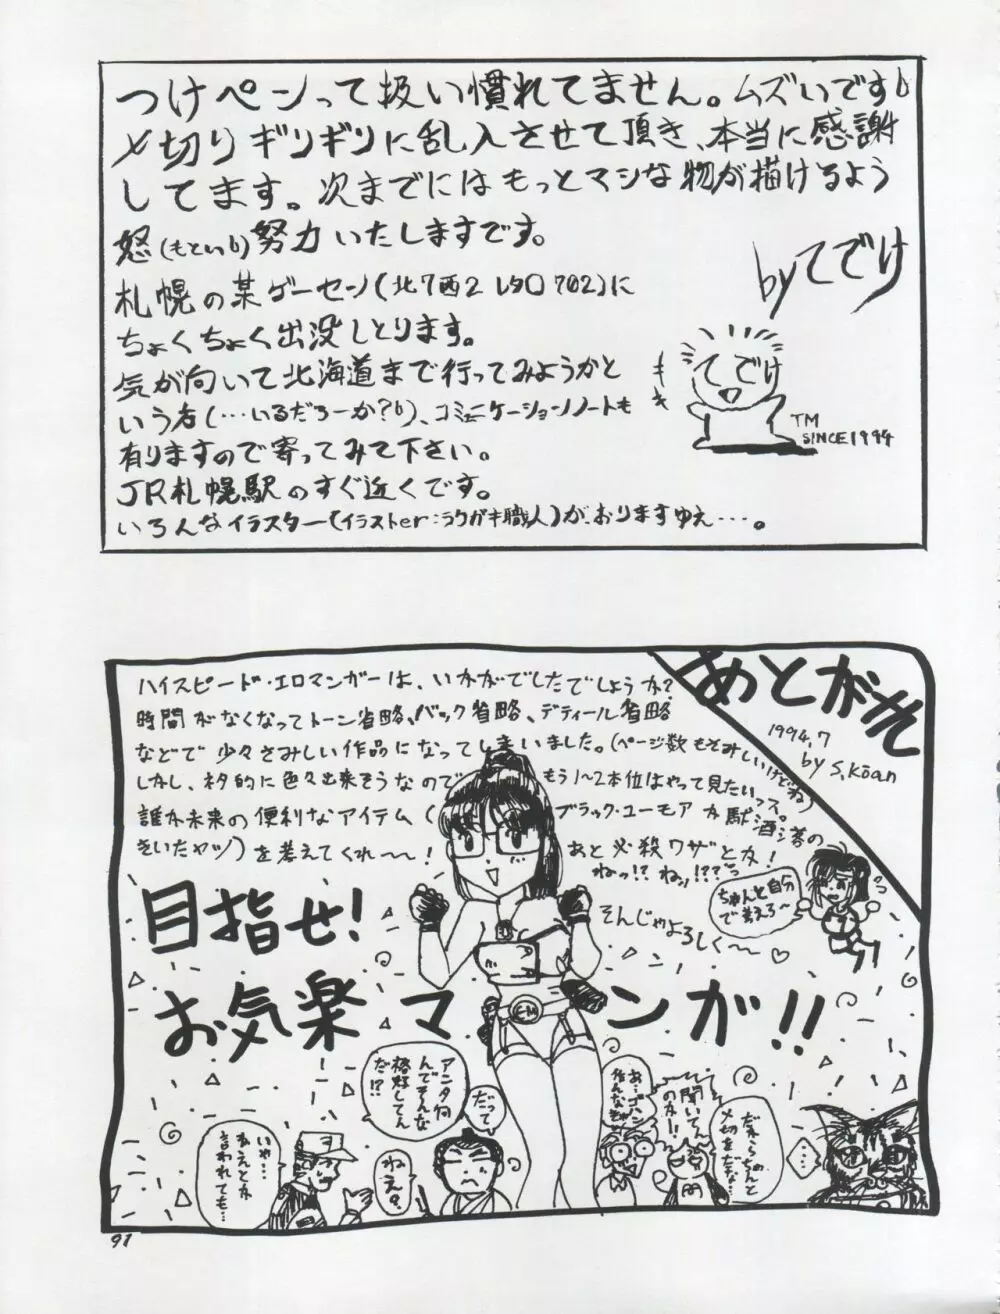 つけペンって扱い慣れてません。ムズいです
〆切りギリギリに乱入させて頂き、本当に感謝
してます。次までにはもっとマシな物が描けるよう
怒(もとい)努力いたしますです。
札幌の某ゲーセン(北7西2 レタロ702)に
ちょくちょく出没しとります。
気が向いて北海道まで行ってみようかと
いう者(…いるだろーか?)、コミュニケーションノートも
有りますので寄ってみて下さい。
JR札幌駅のすぐ近くです。
いろんなイラスター(イラストer:ラクガキ職人)が、おりますゆえ…。
byてでけ
てでけ
TM
SINCE1994
あとがき
1994.7
by S.Kōan
ハイスピード・エロマンガーは、いかがでしたでしょうか?
時間がなくなってトーン省略、バック省略、ディティール省略
などで少々さみしい作品になってしまいました。(ページ数もさみしいけどね)
しかし、ネタ的に色々出来そうなのでもう1〜2本位はやって見たいっス。
誰か未来の便利なアイテム(ブラック・ユーモアか駄洒落の
きいたヤツ)を考えてくれ〜〜!
あと必殺ワザとか!
ねっ!?ねっ!??
そんじゃよろしく〜〜♡
ちゃんと自分
で考えろ〜
目指せ!
お気楽マンガ!!
アンタ何
んでそんな
格好してん
だ!?
だって
お…ゴハン
作んなきゃ
聞いてん
のか!!
だからちゃんと
〆切をだな…
…
いや…
ねえとか
言われても…
ねえ。
91